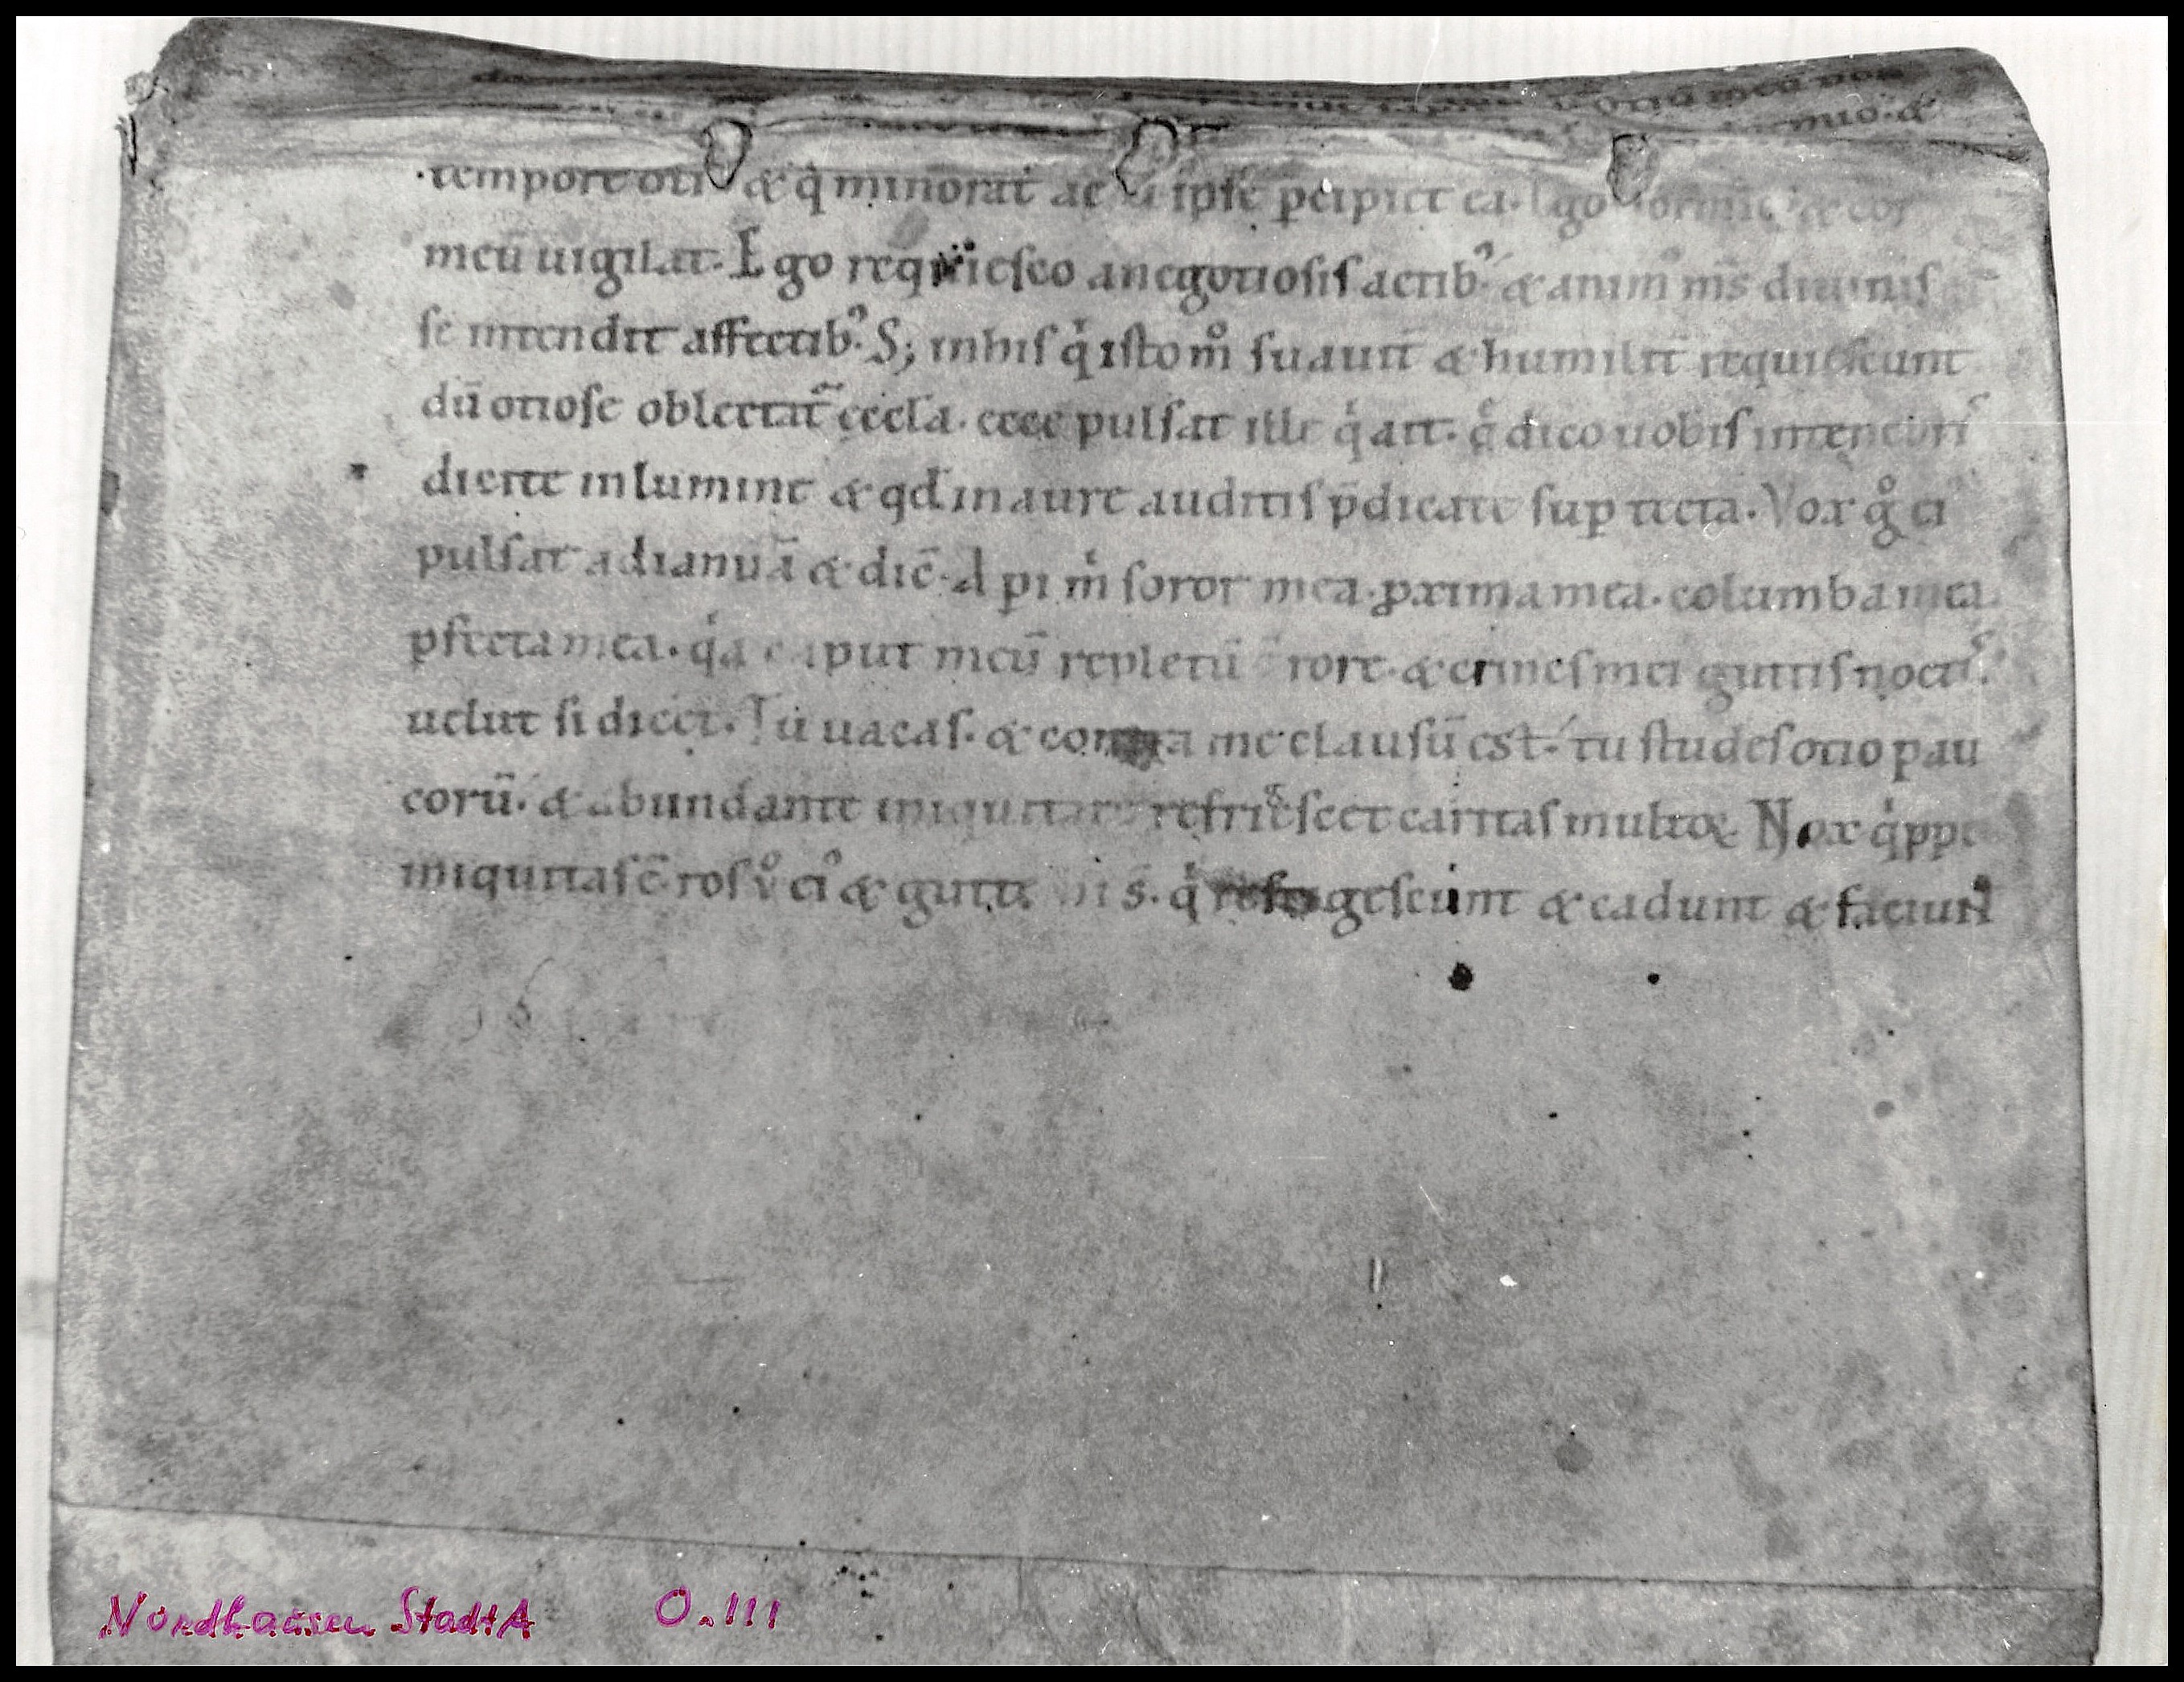 mea non
mio. &
tempore oti & q̇ minorat ac ipse ꝑcipiet ea. Ego dormio & cor
meū uigilat. Ego requiesco a negotiosis actib' & anim' m̄s diuinis
se intendit affectib'. S; in his q̇ isto m̊ suauit̄ & humilit̄ requiescunt
dū otiose oblectat̄ ęccła. ecce pulsat ille q̇ ait. q̇ dico uobis in tenebris
dicite in lumine & qd̄ in aure auditis p̄dicate suꝑ tecta. Vox g̊ ei'
pulsat ad ianuā & dic̄. Aꝑi ṁ soror mea. ꝓxima mea. columba mea.
ꝑfecta mea. q̇a caput meū repletū ē rore. & crines mei guttis noctis.
uelut si dicet. Tu uacas. & contra me clausū est. tu studes otio pau
corū. & abundante iniquitate refriēscet caritas multoꝝ. Nox q̇ppe
iniquitas ē. ros v̊ ei' & guttę hi s̄. q̇ refrigescunt & cadunt & faciunt
Nordhausen StadtA O. III